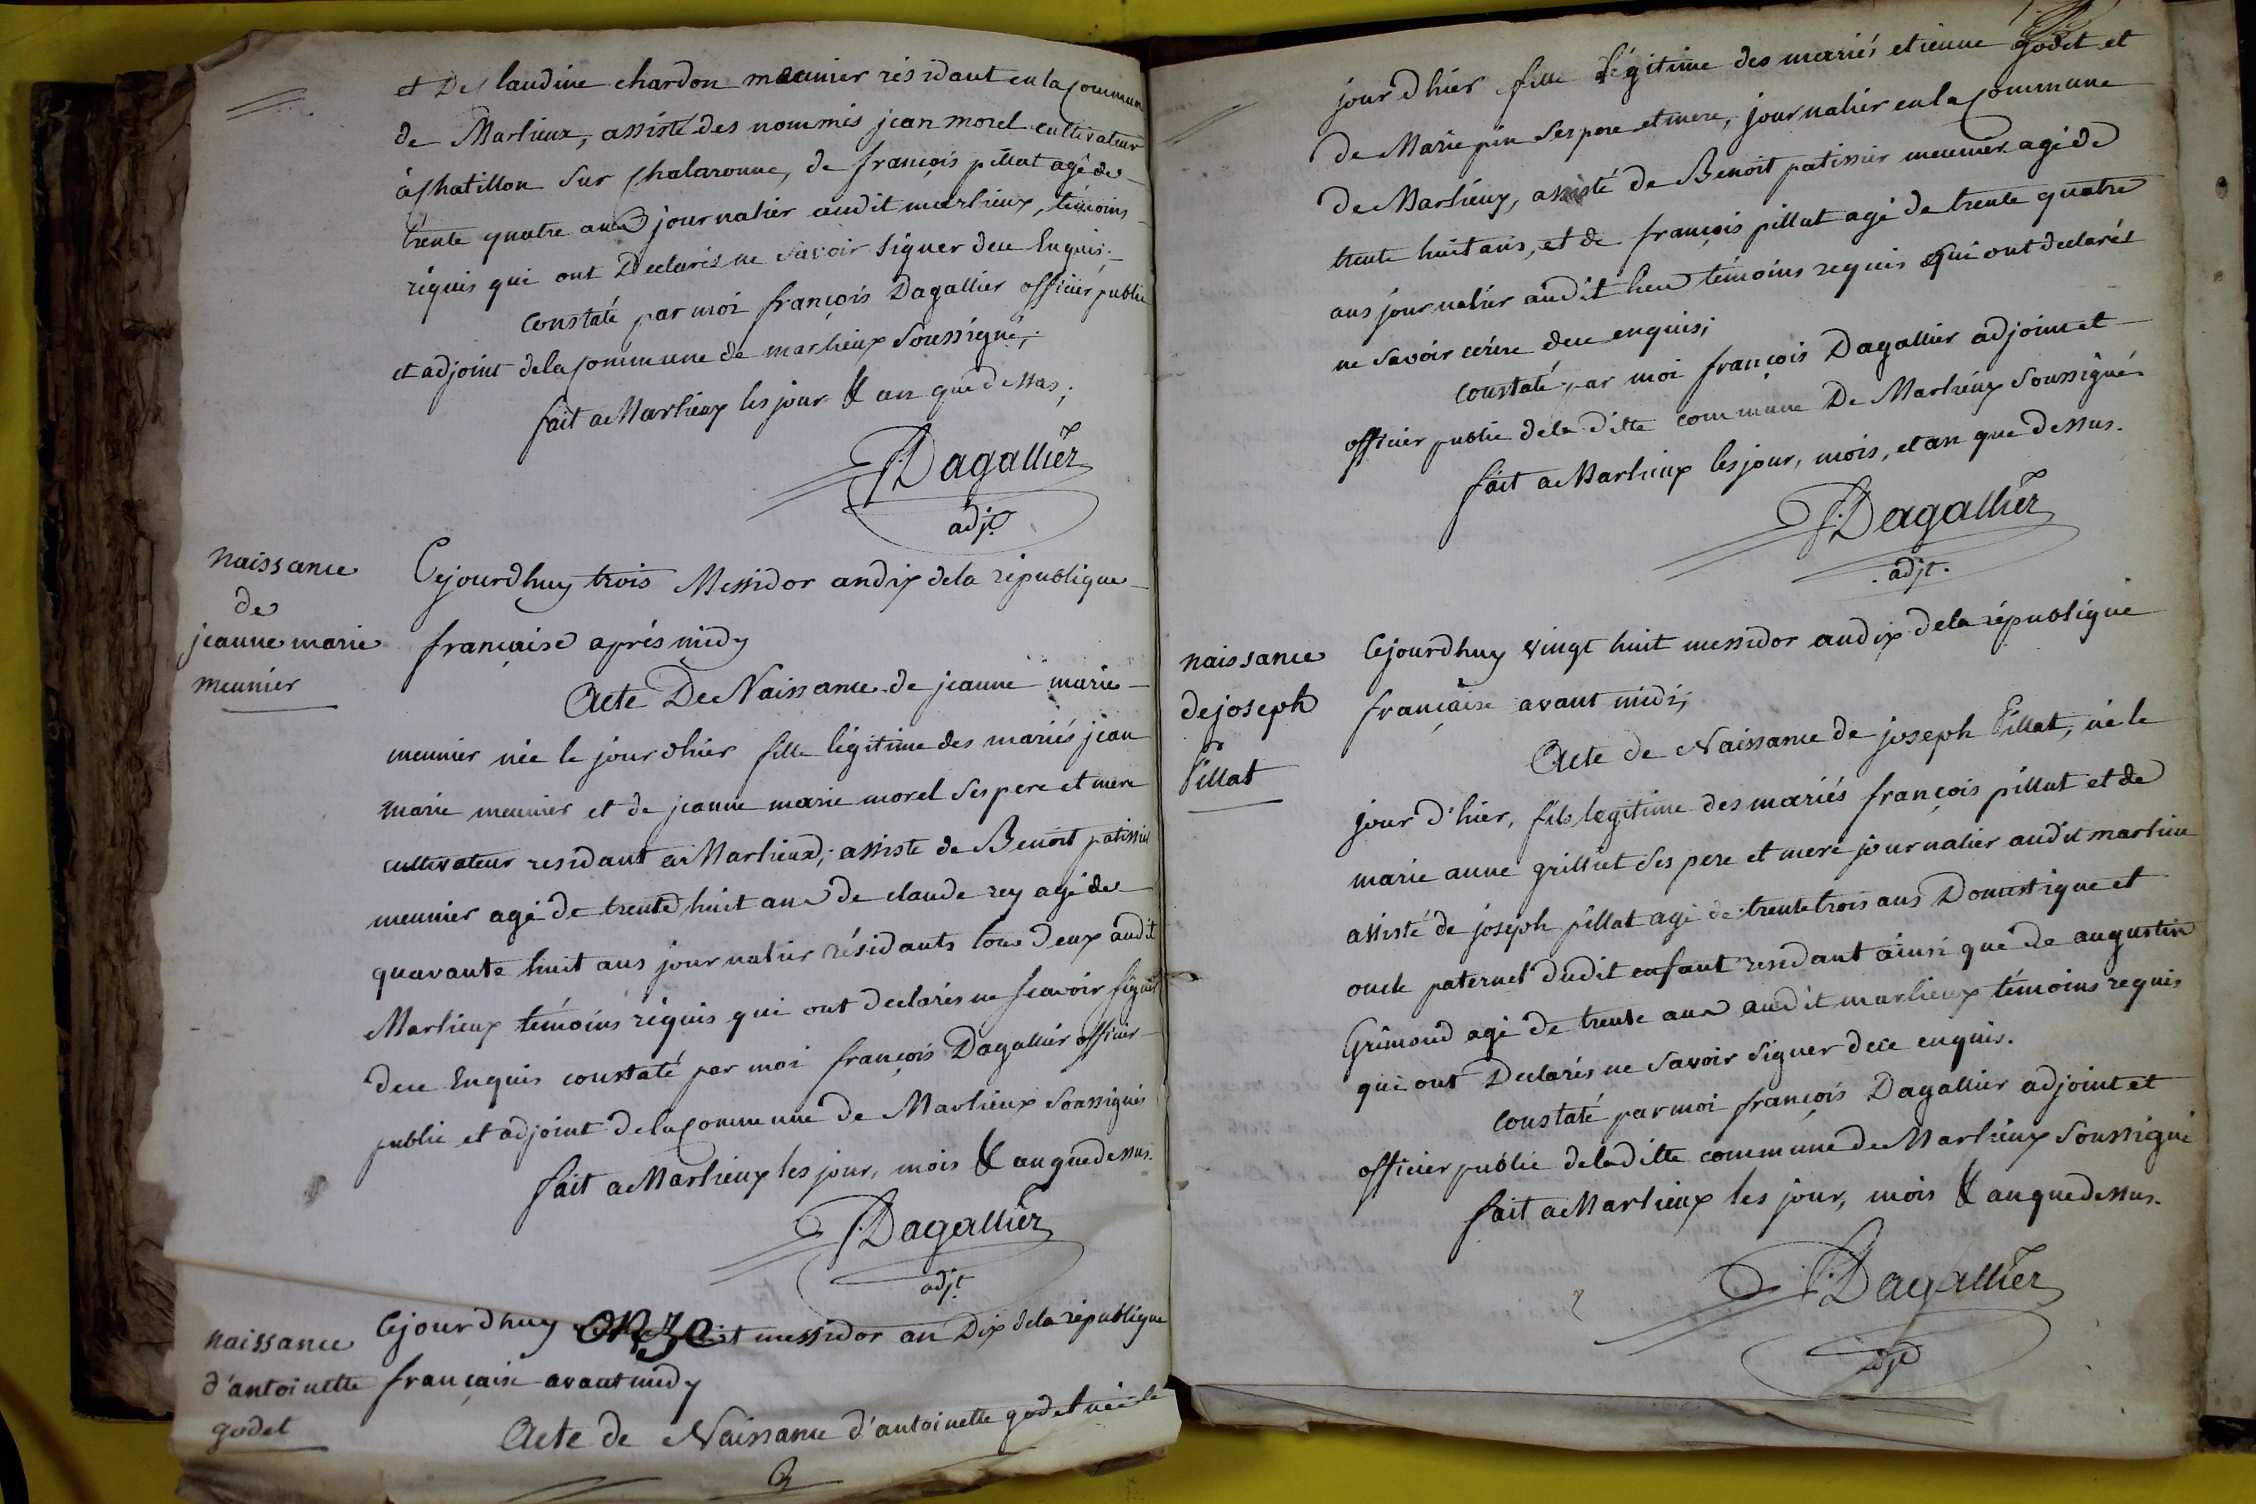 et De Claudine chardon meunier résidant en la Commune
de Marlieux, assisté des nommés jean morel cultivateur
à Chatillon Sur Chalaronne, de françois pillat agé de
trente quatre ans journalier audit marlieux, témoins
réquis qui ont Declarés ne Savoir Signer de ce Enquis;
Constaté par moi françois Dagallier officier public
et adjoint de la Commune de marlieux Soussigné;
fait a Marlieux les jour & an que dessus;
Dagallier
adjt.
naissance
de
jeanne marie
meunier
Cejourdhuy trois Messidor an dix de la république
française aprés midy
Acte De Naissance de jeanne marie
meunier née le jour dhier fille légitime des mariés jean
marie meunier et de jeanne marie morel Ses pere et mere
cultivateur residant a Marlieux; assiste de Benoit patissier
meunier agé de trente huit ans de claude rey agé de
quarante huit ans journalier résidants tous deux audit
Marlieux témoins réquis qui ont declarés ne Scavoir Signer
de ce Enquis constaté par moi françois Dagallier officier
public et adjoint de la Commune de Marlieux Soussignés
fait a Marlieux les jour, mois & an que dessus.
Dagallier
adjt.
naissance
d'antoinette
godet
Cejourdhuy onze messidor an Dix de la république
française avant midy
Acte de Naissance d'antoinette godet née le
jour dhier fille légitime des mariés etienne godet et
de Marie pin Ses pere et mere, journalier en la Commune
de Marlieux, assisté de Benoit patissier meunier agé de
trente huit ans, et de françois pillat agé de trente quatre
ans journalier audit lieu témoins requis qui ont declarés
ne Savoir ecrire de ce enquis;
Constaté par moi françois Dagallier adjoint et
officier public de la ditte commune De Marlieux Soussigné
fait a Marlieux les jour, mois, et an que dessus.
Dagallier
adjt.
naissance
de joseph
Pillat
Cejourdhuy vingt huit messidor an dix de la république
française avant midi;
Acte de Naissance de joseph Pillat, né le
jour d'hier, fils legitime des mariés françois pillat et de
marie anne grilliet Ses pere et mere journalier audit marlieux
assisté de joseph pillat agé de trente trois ans Domestique et
oncle paternel dudit enfant residant ainsi que de augustin
Grimond agé de trente ans audit marlieux témoins requis
qui ont Declarés ne Savoir Signer de ce enquis.
Constaté par moi françois Dagallier adjoint et
officier public de la ditte commune de Marlieux Soussigné
fait a Marlieux les jour, mois & an que dessus.
Dagallier
adjt